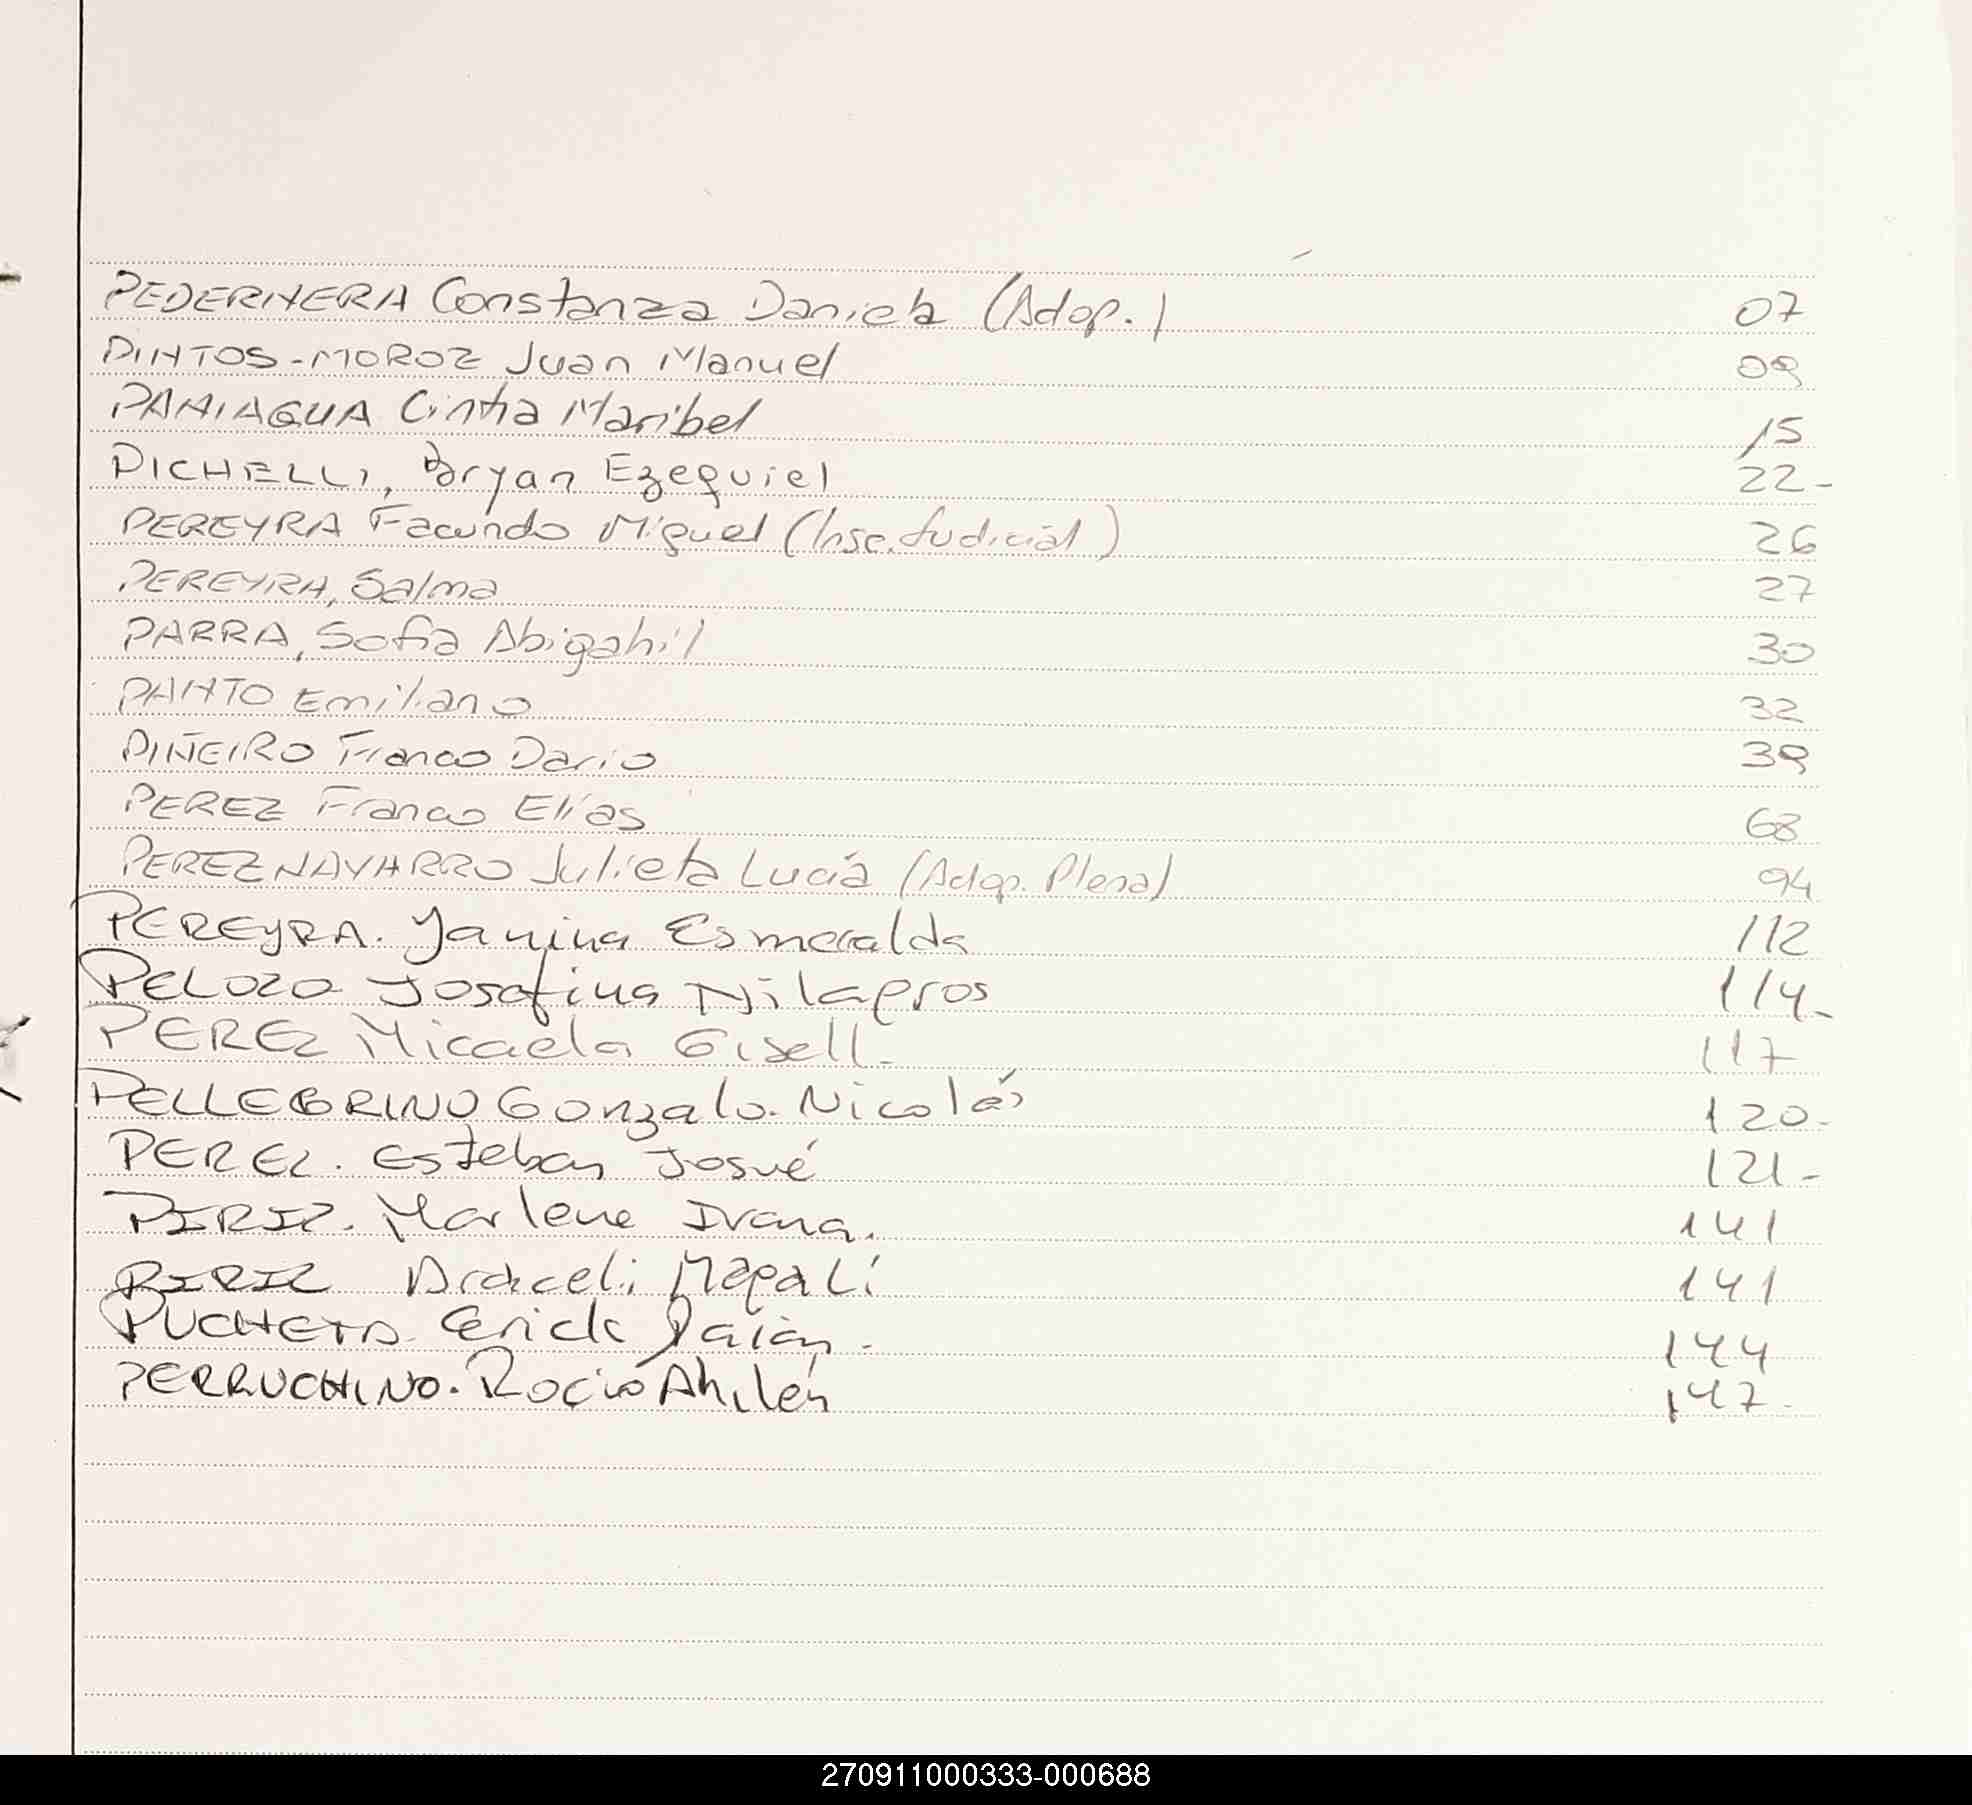 PEDERNERA Constanza Daniela (Adop.) 07
PINTOS-MOROZ Juan Manuel 09
PANIAGUA Cintia Maribel 15
PICHELLI, Bryan Ezequiel 22-
PEREYRA Facundo Miguel (Insc. Judicial) 26
PEREYRA, Salma 27
PARRA, Sofia Abigahil 30
PANTO Emiliano 32
PIÑEIRO Franco Dario 39
PEREZ Franco Elías 68
PEREZ NAVARRO Julieta Lucía (Adop. Plena) 94
PEREYRA. Yanina Esmeralda 112
PELOZO Josefina Milagros 114-
PEREZ Micaela Gisell- 117
PELLEGRINO Gonzalo. Nicolás 120-
PEREZ. Esteban Josué 121-
PIRIZ. Marlene Ivana. 141
PIRIZ Araceli Magalí 141
PUCHETA Erick Daián- 144
PERRUCHINO. Rocío Ahilén 147-
270911000333-000688